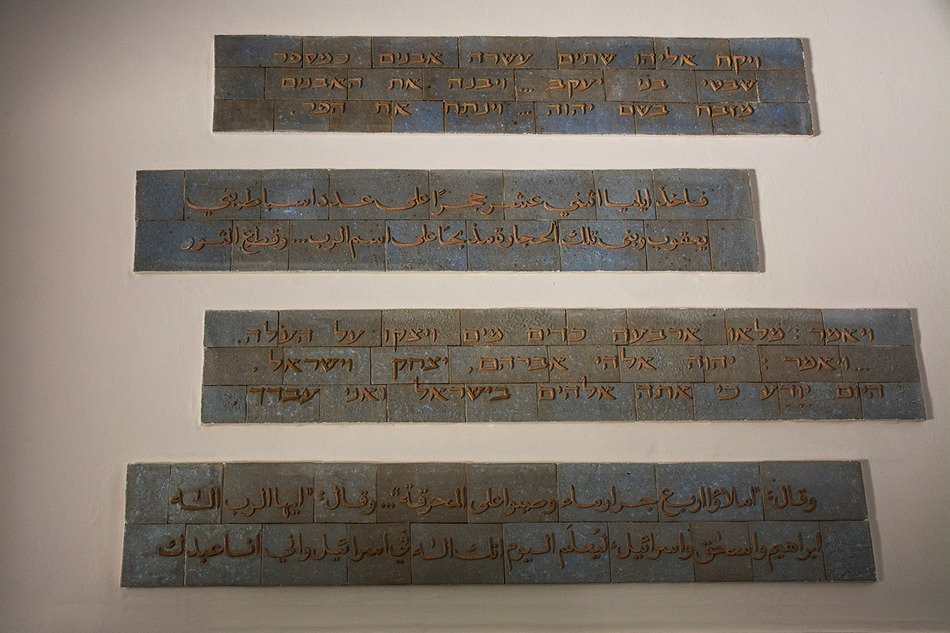 ויקח אליהו שתים עשרה אבנים כמספר
שבטי בני יעקב ... ויבנה את האבנים
מזבח בשם יהוה ... וינתח את הפר
فاخذ ايليا اثنتي عشر حجرًا على عدد اسباط بني
يعقوب وبنى تلك الحجارة مذبحًا على اسم الرب... وقطع الثور
ויאמר: מלאו ארבעה כדים מים ויצקו על העולה.
... ויאמר: יהוה אלהי אברהם, יצחק וישראל,
היום יודע כי אתה אלהים בישראל ואני עבדך.
وقال: "املاؤا اربع جرار ماء وصبوا على المحرقة"... وقال: "ايها الرب اله
ابراهيم واسحق واسرائيل، ليُعلَم اليوم انك اله في اسرائيل واني انا عبدك